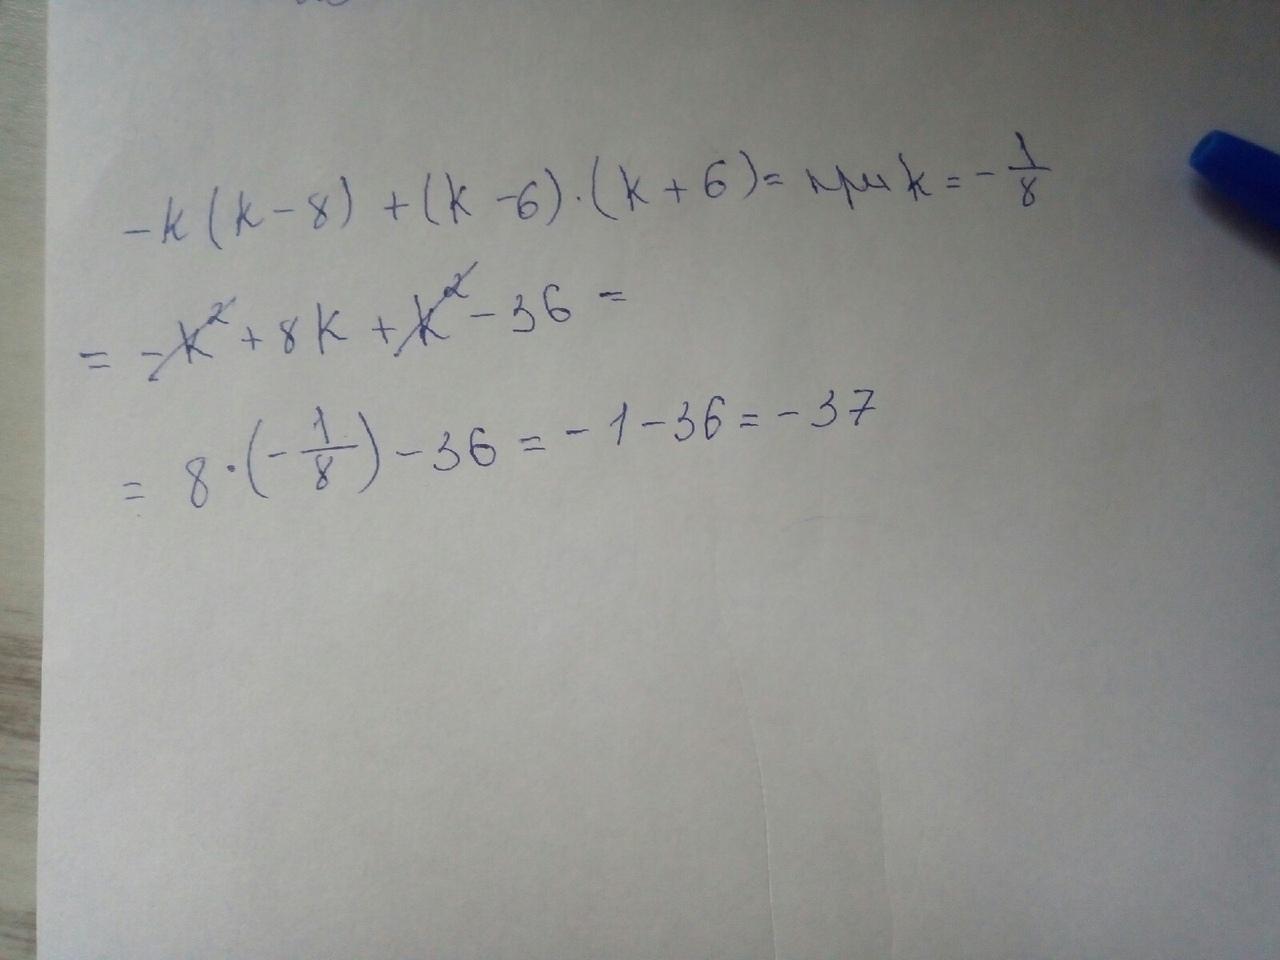 -k(k-8)+(k-6)·(k+6)= при k=-1/8
= -k²+8k+k²-36 =
= 8·(-1/8)-36=-1-36=-37